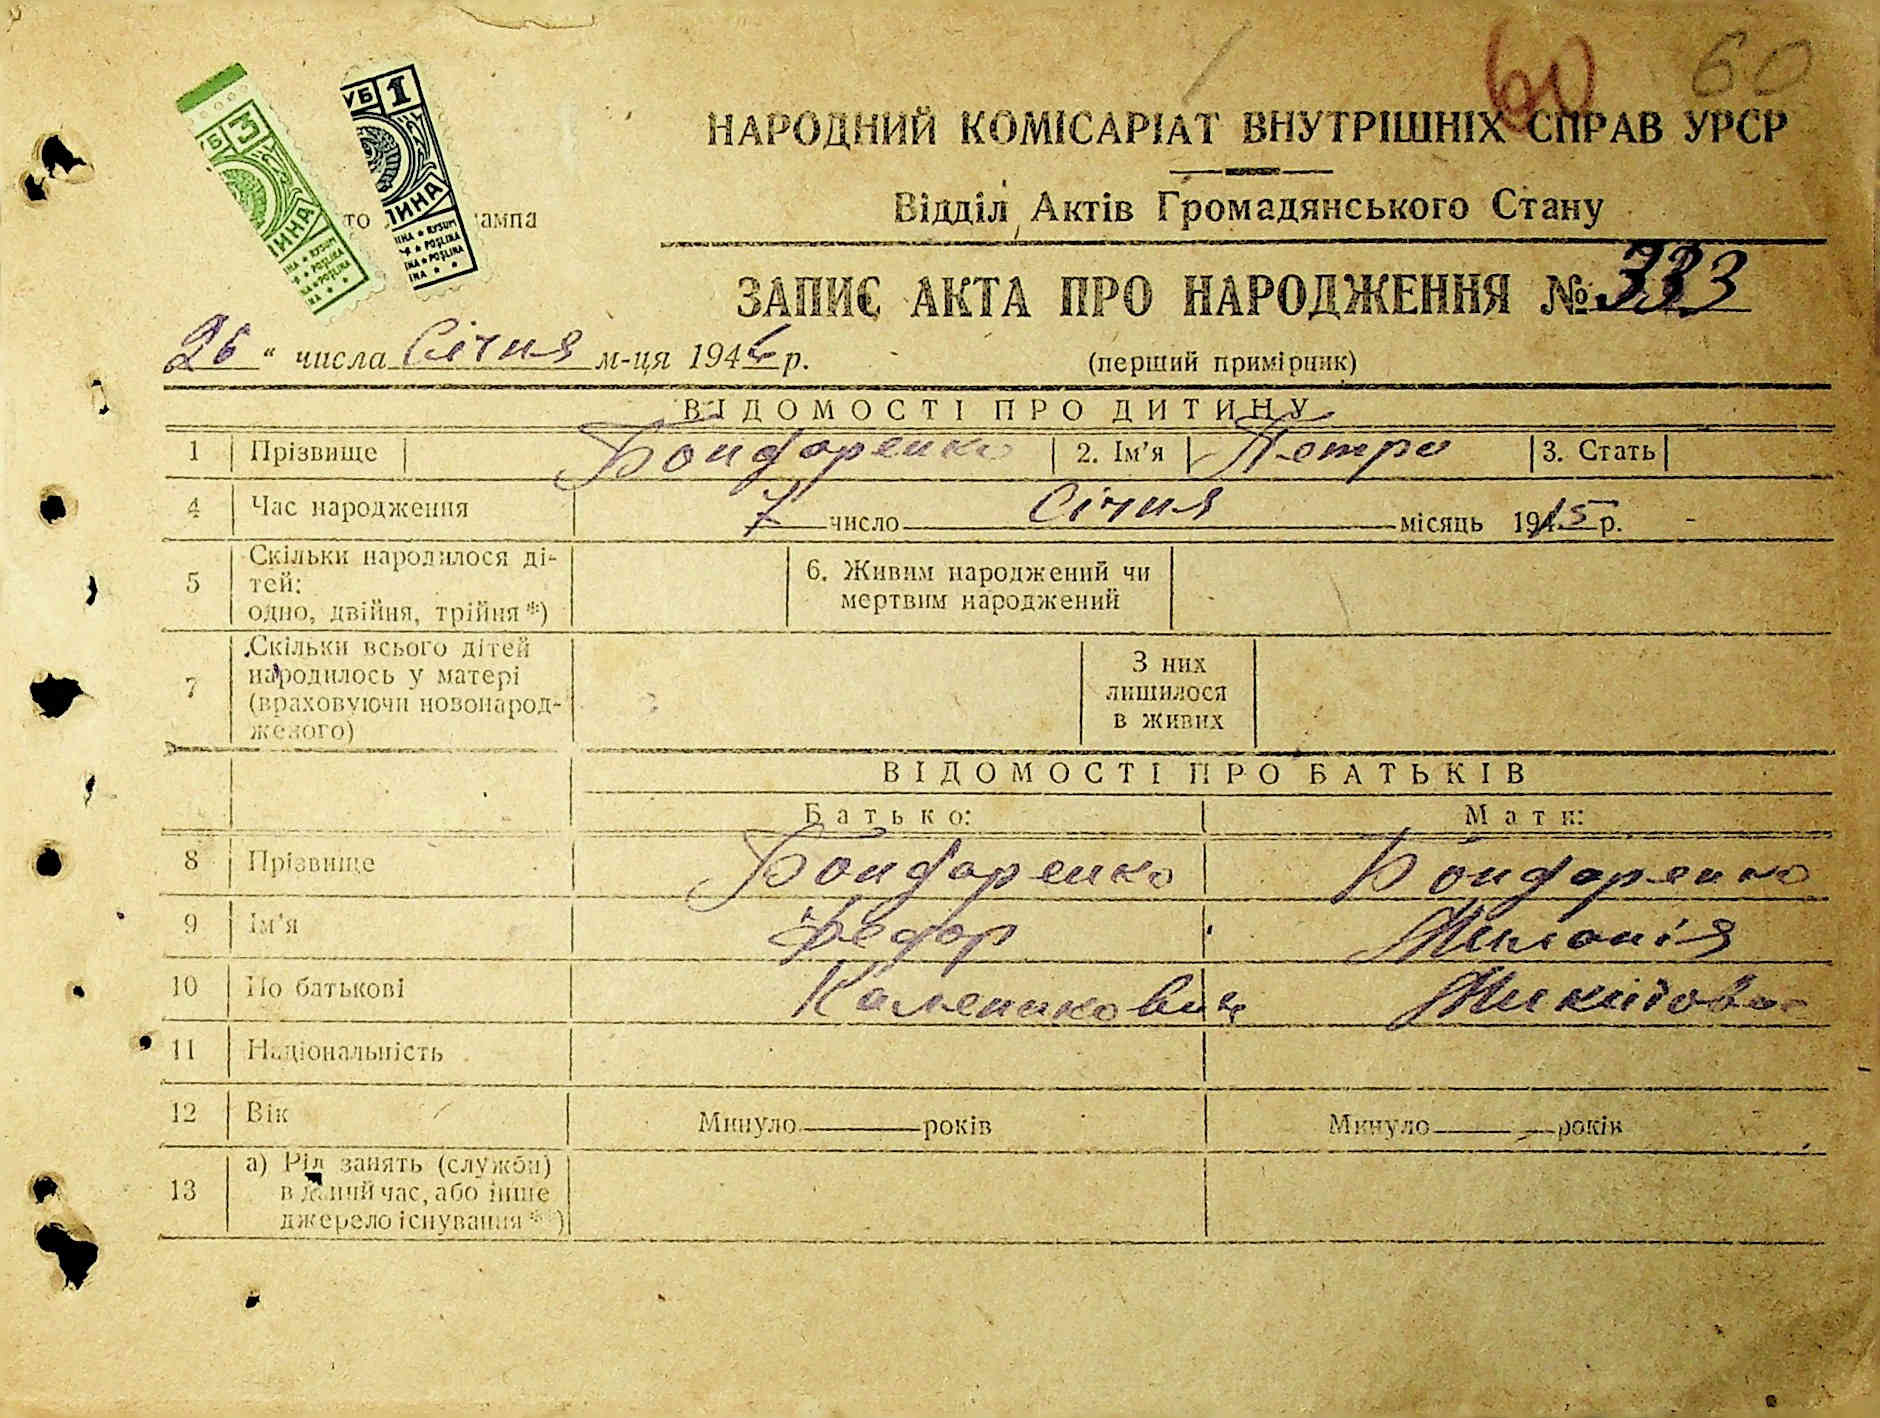 60 60
НАРОДНИЙ КОМІСАРІАТ ВНУТРІШНІХ СПРАВ УРСР
Відділ Актів Громадянського Стану
ЗАПИС АКТА ПРО НАРОДЖЕННЯ № 333
26 " числа Січня м-ця 1946 р. (перший примірник)
ВІДОМОСТІ ПРО ДИТИНУ
1 Прізвище Бондаренко 2. Ім'я Петро 3. Стать
4 Час народження 7 число Січня місяць 1915 р.
5 Скільки народилося ді-
тей:
одно, двійня, трійня *)
6. Живим народжений чи
мертвим народжений
7 Скільки всього дітей
народилось у матері
(враховуючи новонарод-
женого)
З них
лишилося
в живих
ВІДОМОСТІ ПРО БАТЬКІВ
Батько: Мати:
8 Прізвище Бондаренко Бондаренко
9 Ім'я Федор Миланія
10 По батькові Каленикович Микитовна
11 Національність
12 Вік Минуло років Минуло років
13 а) Рід занять (служби)
в даний час, або інше
джерело існування **)